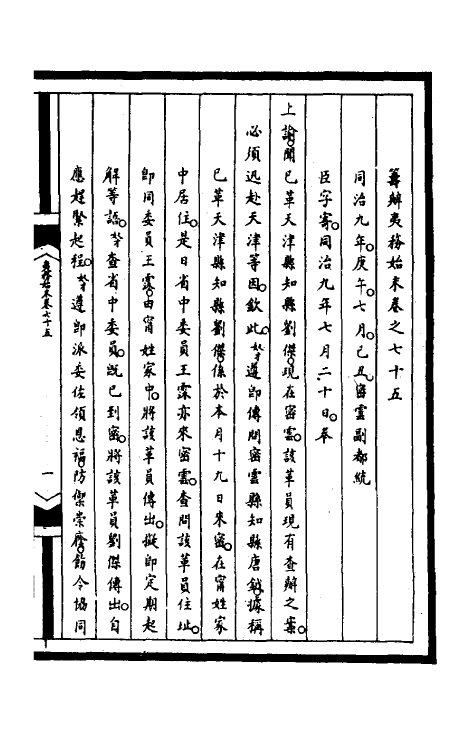 籌辦夷務始末卷之七十五
同治九年。庚午。七月。己丑。密雲副都統
臣字寄。同治九年七月二十日。奉
上諭。聞已革天津縣知縣劉傑。現在密雲。該革員現有查辦之案。
必須迅赴天津等因。欽此。奴才遵即傳問密雲縣知縣唐鉞。據稱
已革天津縣知縣劉傑。係於本月十九日來密。在甯姓家
中居住。是日省中委員王霖亦來密雲。查問該革員住址。
即同委員王霖。由甯姓家中。將該革員傳出。擬即定期起
解等語。奴才查省中委員。既已到密。將該革員劉傑傳出。自
應趕緊起程。奴才遵即派委佐領恩福。防禦崇廕。飭令協同
夷務始末卷七十五
一